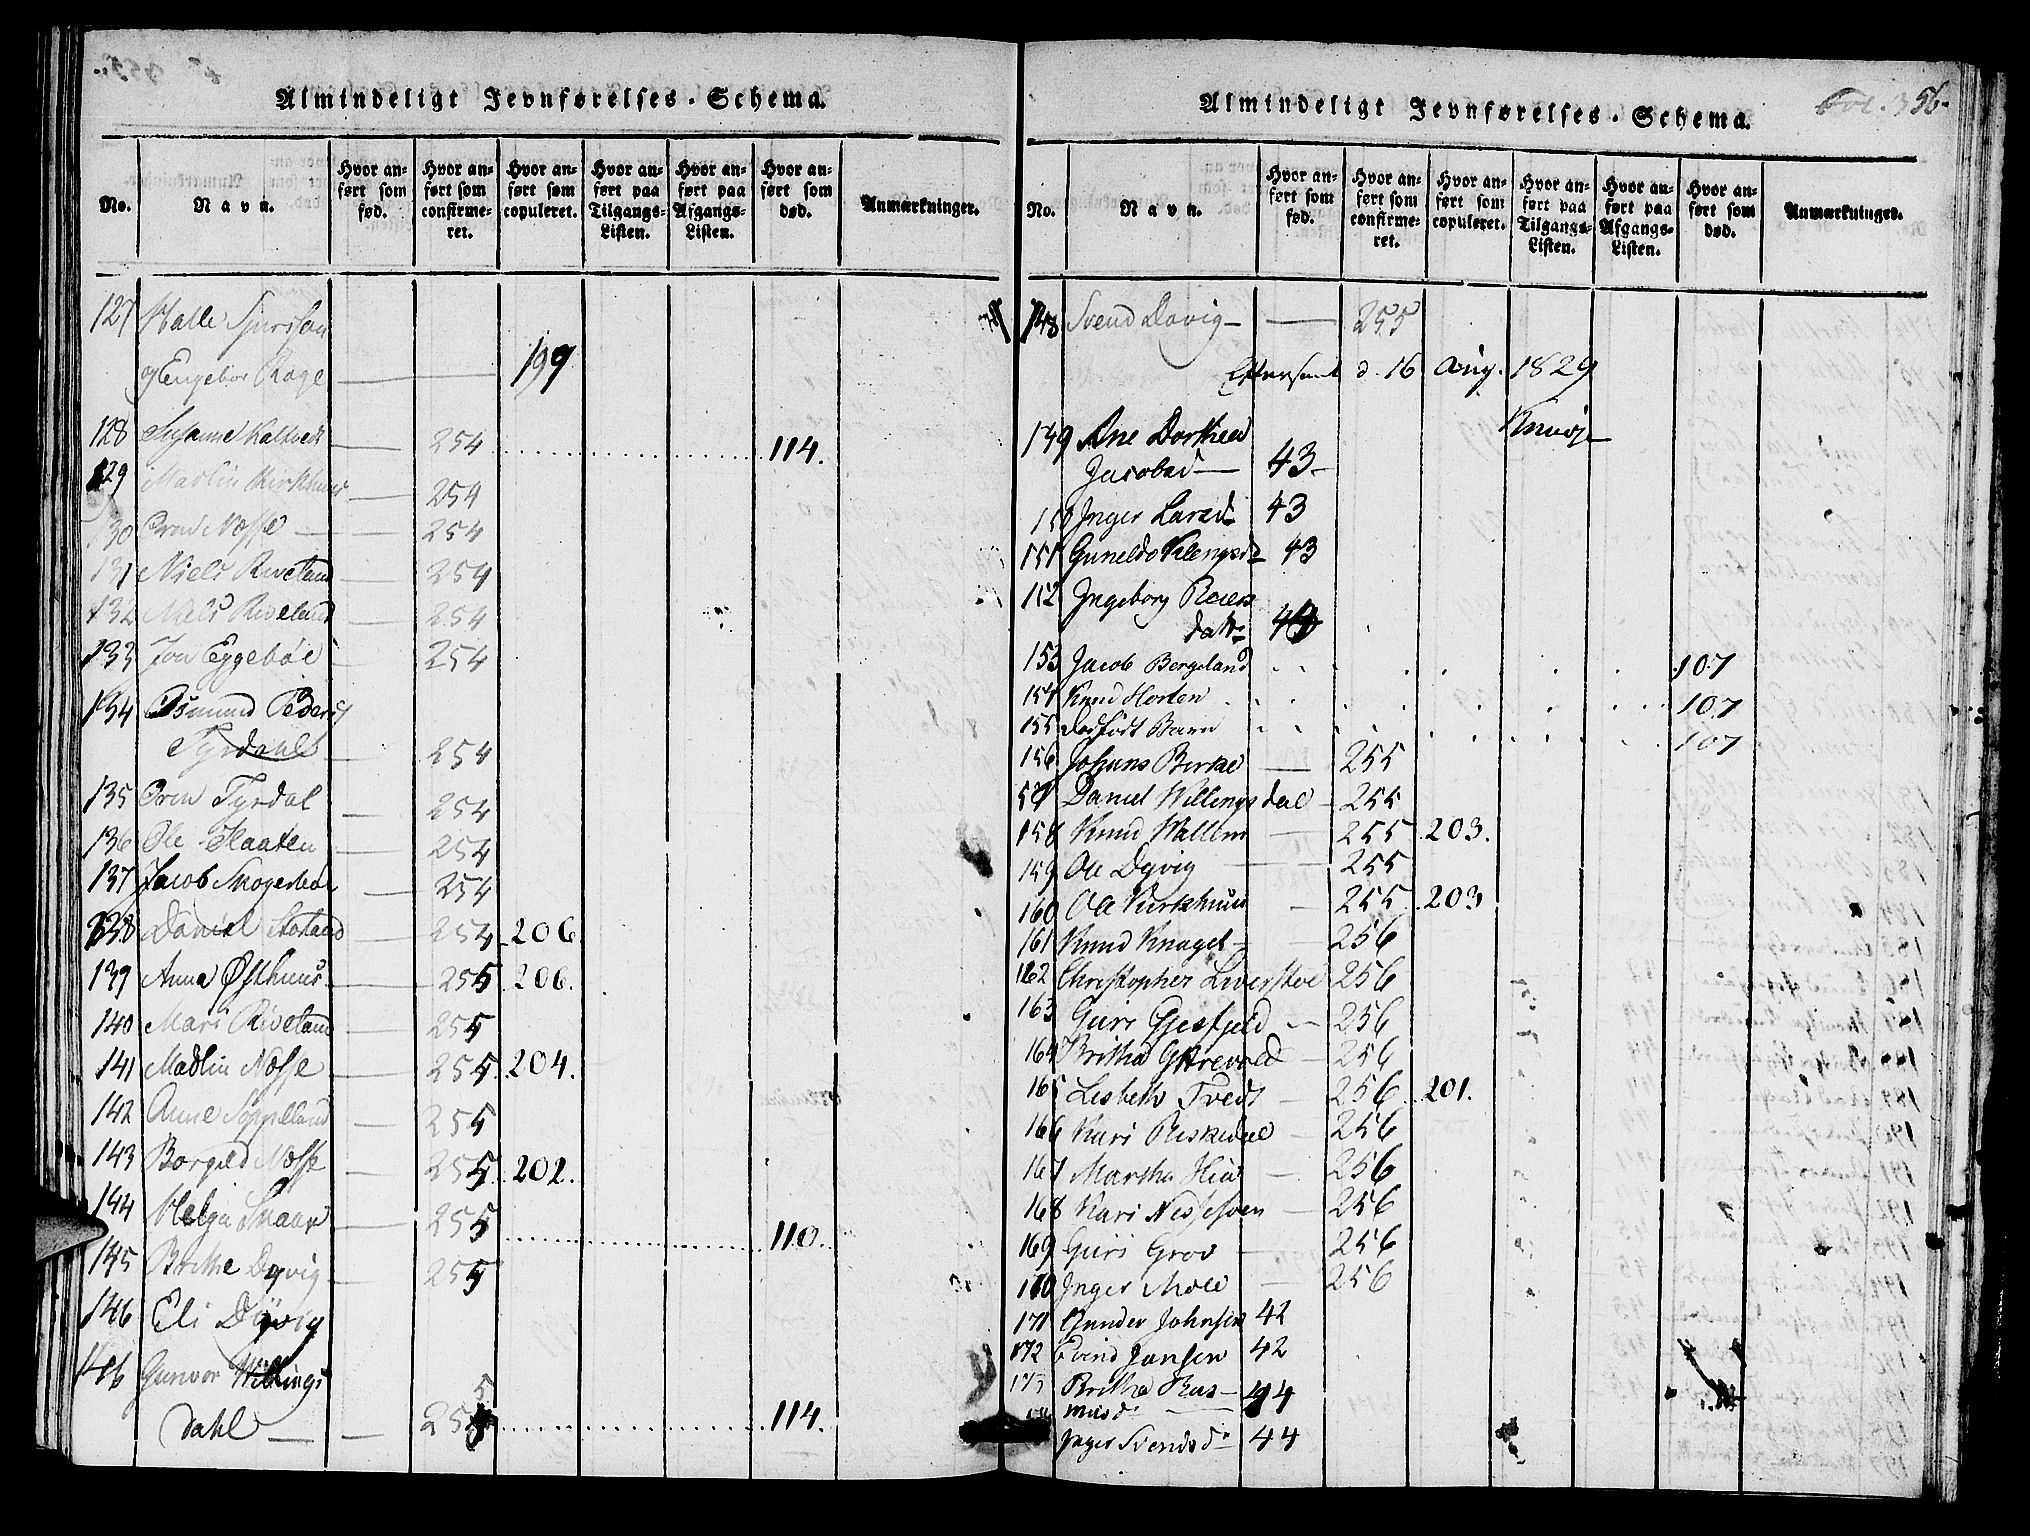 Almindeligt Jevnførelses-Schema.
No.
Navn.
Hvor anført som fød.
Hvor anført som confirmeret.
Hvor anført som copuleret.
Hvor anført paa Tilgangs-Listen.
Hvor anført paa Afgangs-Listen.
Hvor anført som død.
Anmærkninger.
127 Halle Sjursson
og Engebor Rage 199
128 Susanne Kaltvedt 254 114.
129 Marlin Kirkhuus 254
130 Næsse 254
131 Niels Riveland 254
132 Niels Riveland 254
133 Jon Eggebøe 254
134 Osmund Peders
Tyrdahl 254
135 Oren Tyrdal 254
136 Ole Skaaten 254
137 Jacob Skogesbøl 254
138 Daniel Aarland 254 206
139 Anna Østhuus 255 206.
140 Mari Riveland 255
141 Madlin Næsse 255 204.
142 Anne 255
143 Borgild Næsse 255 202.
144 Helga Skaar 255 110.
145 Brithe Dyvig 255
146 Eli Dÿvig
146 Gunvor Willings
dahl 255 114.
Almindeligt Jevnførelses-Schema.
Fol. 356.
No.
Navn.
Hvor anført som fød.
Hvor anført som confirmeret.
Hvor anført som copuleret.
Hvor anført paa Tilgangs-Listen.
Hvor anført paa Afgangs-Listen.
Hvor anført som død.
Anmærkninger.
148 Svend Døvig 255
d. 16 Aug. 1829
149 Ane Dorthea
Jacobsd 43
150 Inger Larsd 43
151 Guneldo Willengsd 43
152 Ingeborg
datr 44
153 Jacob Bergeland 107
154 Knud Horten 107
155 Dødfødt Barn 107
156 Johans Birke 255
157 Daniel Willengsdal 255
158 Knud Wallem 255 203.
159 Ole Dyvig 255
160 Ole Kirkhuus 255 203
161 Knud Knagel 256
162 Christopher 256
163 Guri Gjesfjeld 256
164 Britha 256
165 Lisbeth Tvedt 256 201.
166 Kari Riskedal 256
167 Martha Hia 256
168 Kari 256
169 Guri Grov 256
170 Inger Moe 256
171 Gunder Johnsen 42
172 Evind Jansen 42
173 Britha Ras- 44
musd
Inger Svendsd 44